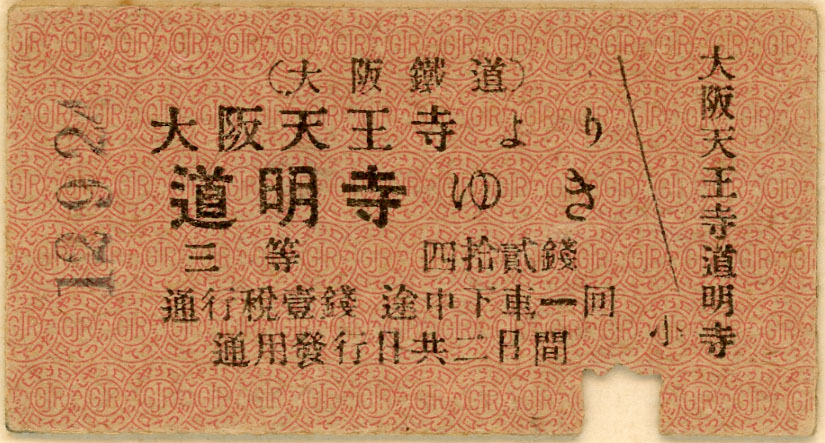 (大阪鐵道)
大阪天王寺より
道明寺ゆき
三等 四拾貳錢
通行税壹錢 途中下車一回
通用發行日共二日間
大阪天王寺道明寺
小
12 9 2